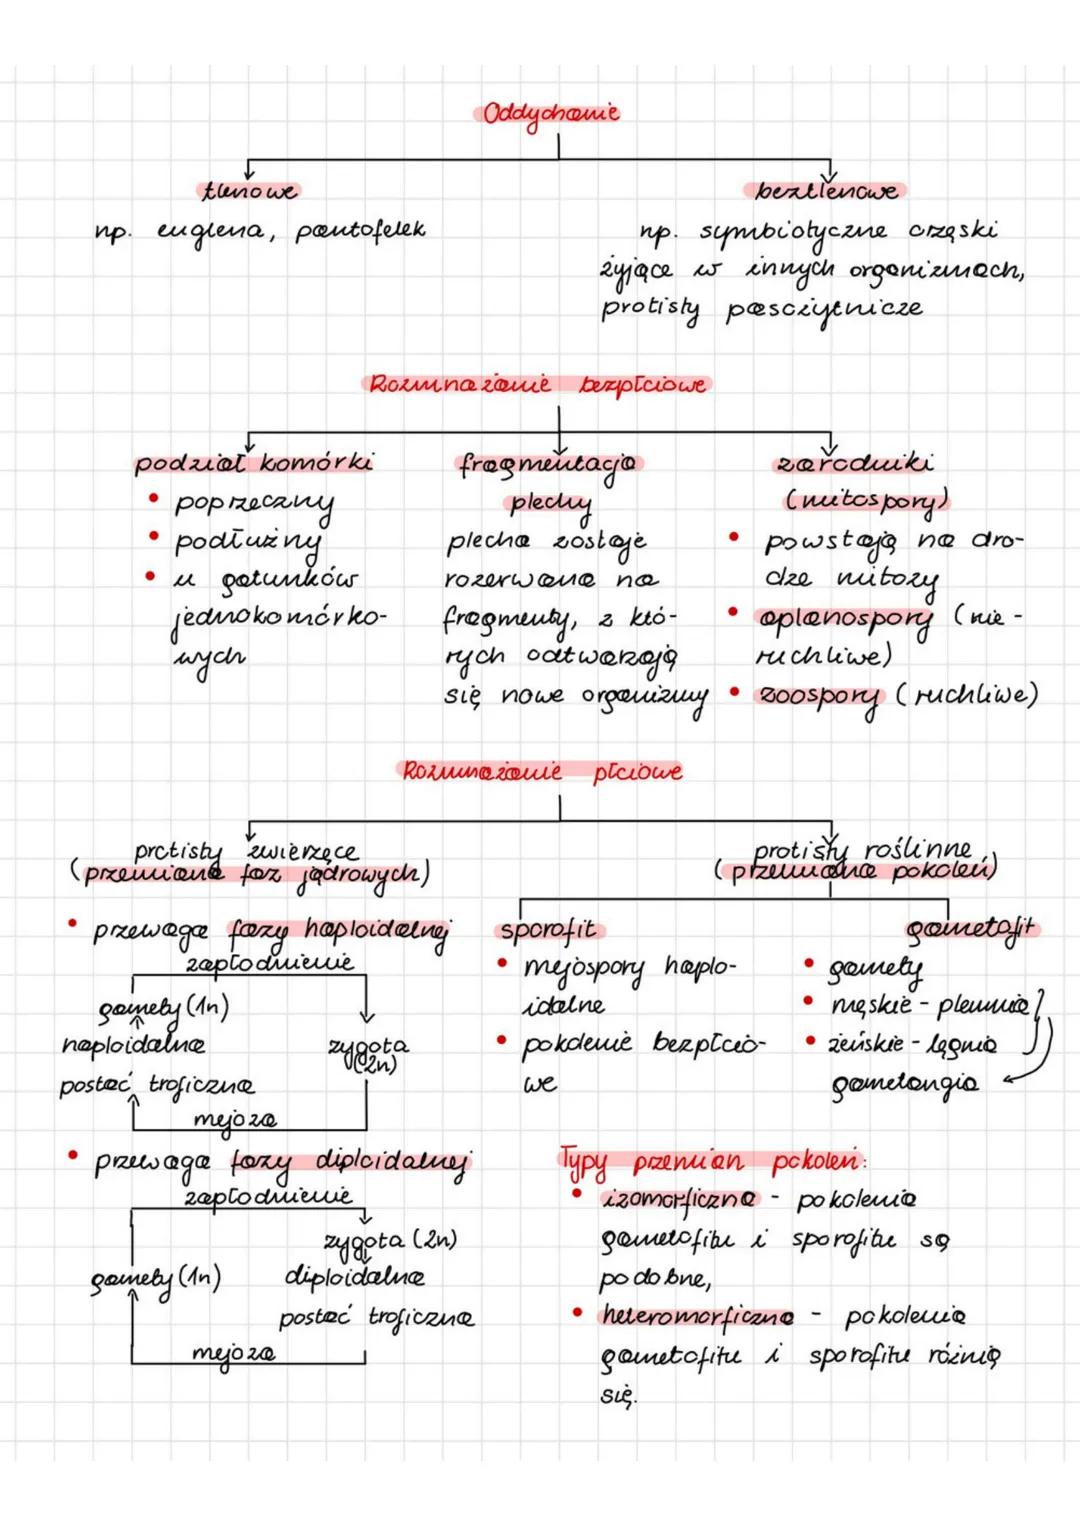 Oddychanie
tlenowe
np. euglena, pantofelek
beztlenowe
np. symbiotyczne orzęski
żyjące w innych organizmach,
protisty pasożytnicze
Rozmnażanie bezpłciowe
podział komórki
• poprzeczny
• podłużny
• u gatunków
jednokomórko-
wych
fragmentacja
plechy
plecha zostaje
rozerwana na
fragmenty, z któ-
rych odtwarzają
się nowe organizmy
zarodniki
(mitospory)
• powstają na dro-
dze mitozy
• aplanospory (nie-
ruchliwe)
• zoospory (ruchliwe)
Rozmnażanie płciowe
protisty zwierzęce
(przemiana faz jądrowych)
• przewaga fazy haploidalnej
zapłodnienie
gamety (1n)
haploidalna
postać troficzna
zygota
(2n)
mejoza
• przewaga fazy diploidalnej
zapłodnienie
zygota (2n)
gamety (1n)
diploidalna
postać troficzna
mejoza
protisty roślinne
(przemiana pokoleń)
sporofit
• mejospory haplo-
idalne
• pokolenie bezpłcio-
we
gametofit
• gamety
• męskie - plemnia
• żeńskie - lęgnia
gametangia
Typy przemian pokoleń:
• izomorficzna - pokolenia
gametofitu i sporofitu są
podobne,
• heteromorficzna - pokolenia
gametofitu i sporofitu różnią
się.